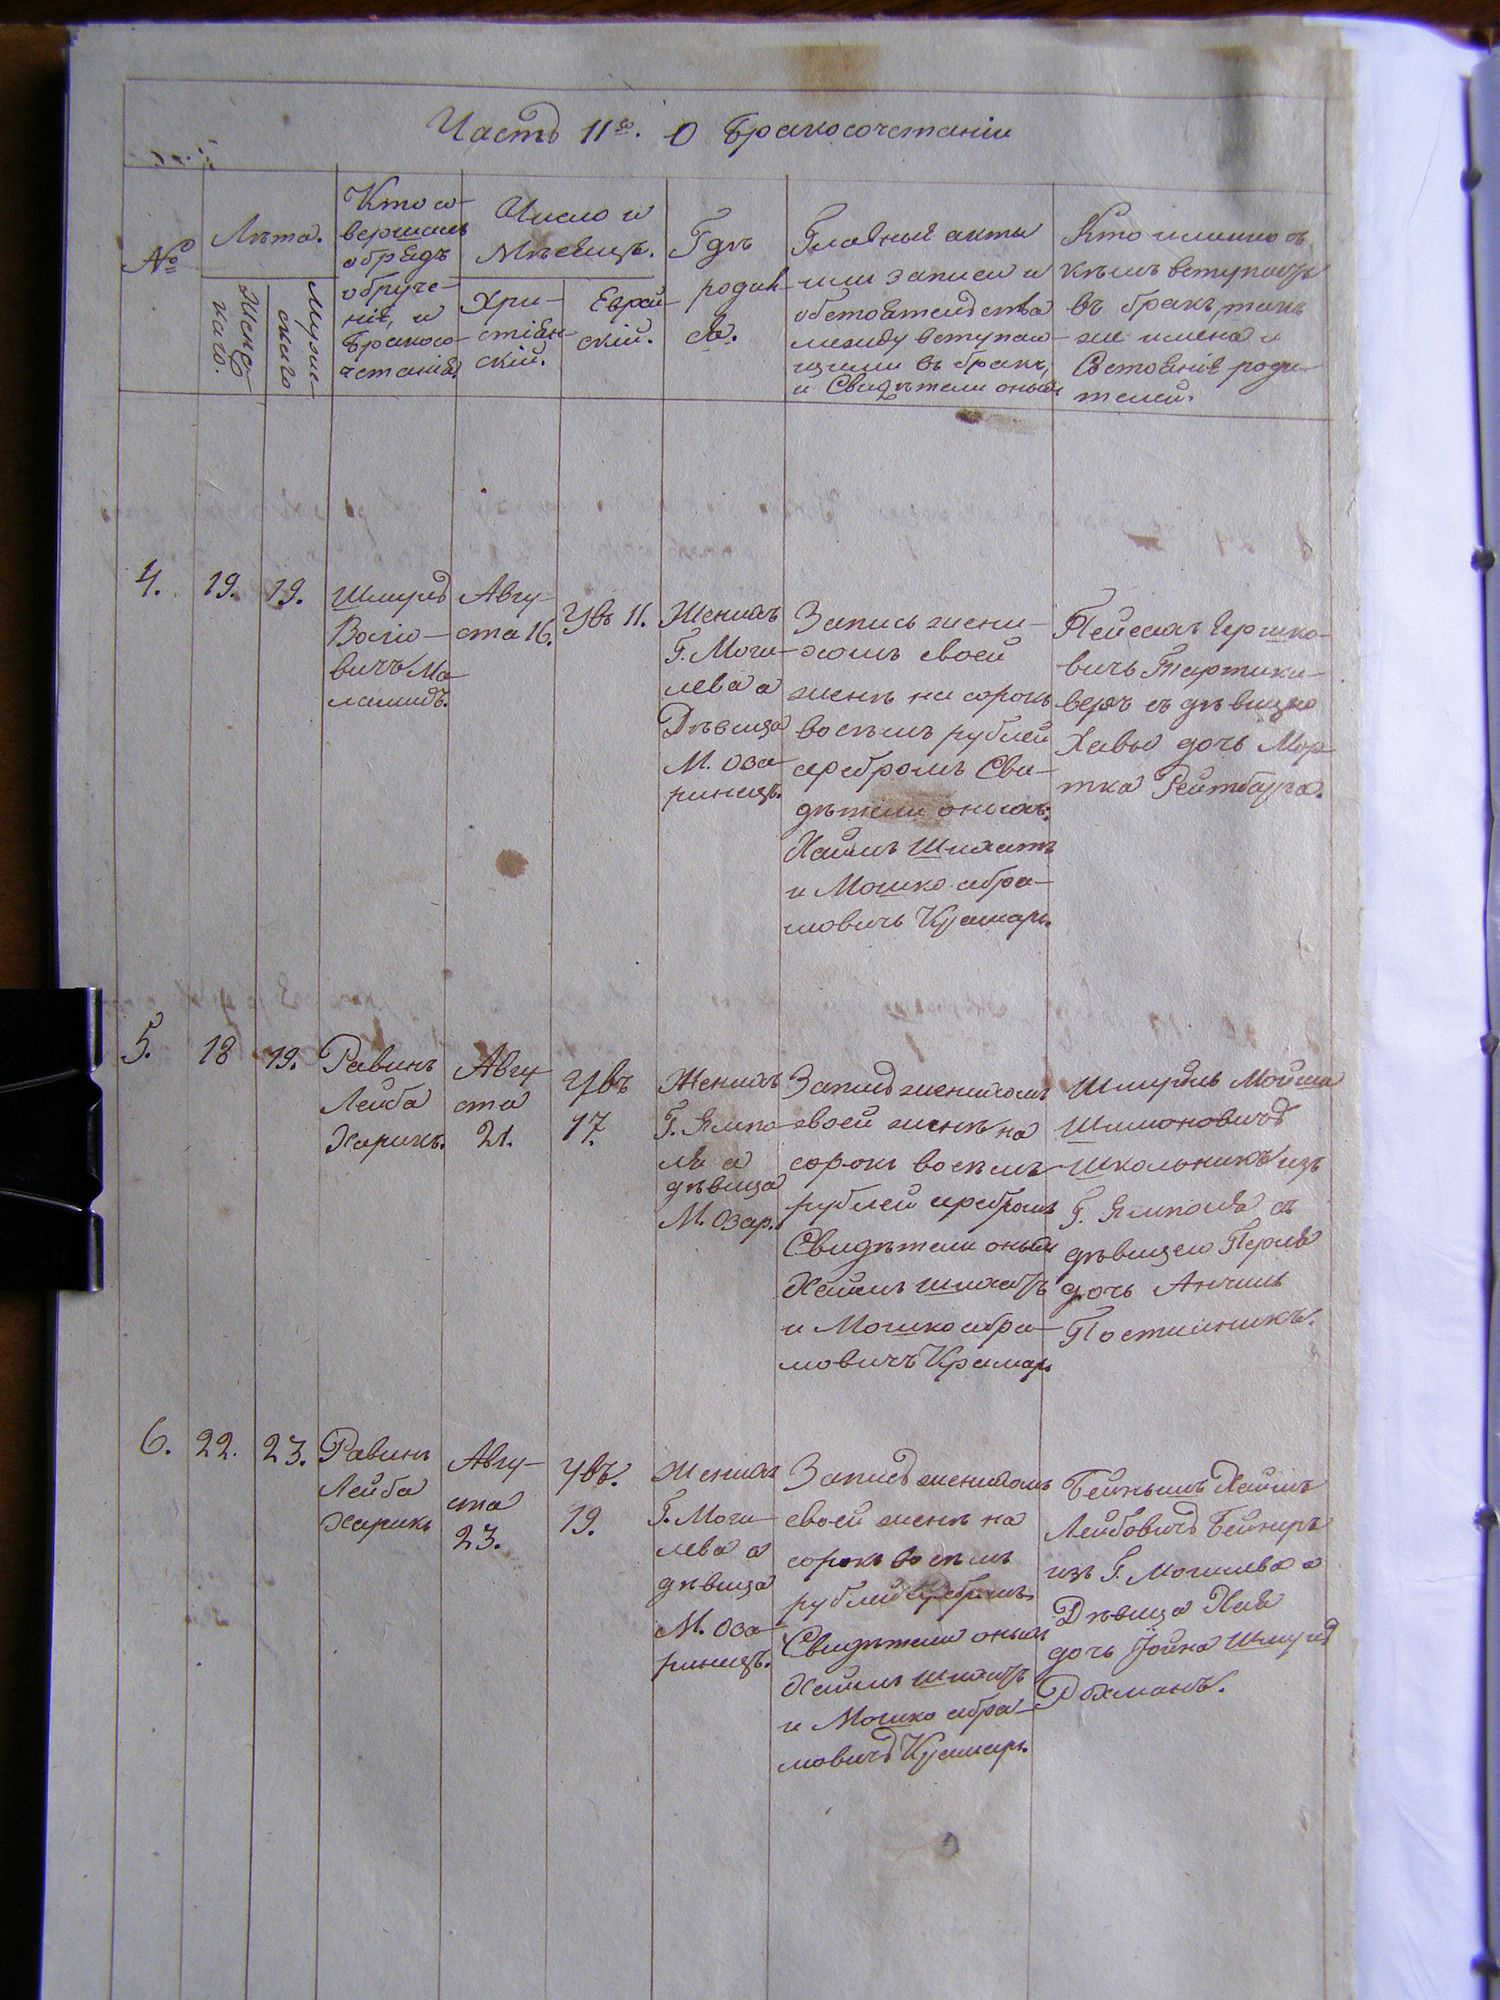 Часть IIя. О бракосочетании
№
Лѣта.
Женс-
каго.
Муже-
скаго
Кто со-
вершалъ
обрядъ
обруче-
нія, и
бракосо-
четанія.
Число и
Мѣсяцъ.
Хри-
стіян-
скій.
Еврей-
скій.
Гдѣ
родил-
ся.
Главныя акты
или записи и
обстоятельства
между вступаю-
щими въ бракъ,
и Свидѣтели оныхъ
Кто именно съ
кѣмъ вступаетъ
въ бракъ, такъ
же имена и
Состоянія роди-
телей.
4.
19.
19.
Шмуль
Вольо-
вичъ Ма-
ламидъ.
Авгу-
ста 16.
Увъ 11.
Женихъ
Г. Моги-
лева а
Дѣвица
М. Оза-
ринецъ.
Запись жени-
хомъ своей
женѣ на сорокъ
восѣмъ рублей
серебромъ Сви-
дѣтели оныхъ:
Хаимъ
и Мошко абра-
мовичь Крамарь.
Пейсахъ Гершко-
вичь
съ дѣвицею
Хавы дочь Мор-
тка Рейтбурга.
5.
18
19.
Равинъ
Лейба
Харикъ.
Авгу-
ста
21.
Увъ
17.
Женихъ
Г. Ямпо-
ля а
дѣвица
М. Озар.
Запись женихомъ
своей женѣ на
сорокъ восѣмъ
рублей серебромъ
Свидѣтели оныхъ
Хаимъ
и Мошко абра-
мовичъ Крамарь
Шмуль Мойша
Шимоновичь
Школьникъ изъ
Г. Ямполя съ
дѣвицею Перля
дочь Анчиль
Постильникъ.
6.
22.
23.
Равинъ
Лейба
Харикъ
Авгу-
ста
23.
Увъ.
19.
Женихъ
Г. Моги-
лева а
дѣвица
М. Оза-
ринецъ.
Запись женихомъ
своей женѣ на
сорокъ восѣмъ
рублей серебромъ
Свидѣтели оныхъ
Хаимъ
и Мошко абра-
мовичь Крамарь.
Бейнышъ Хаимъ
Лейбовичь
изъ Г. Могилева а
Дѣвица Хая
дочь Іойна Шмуль